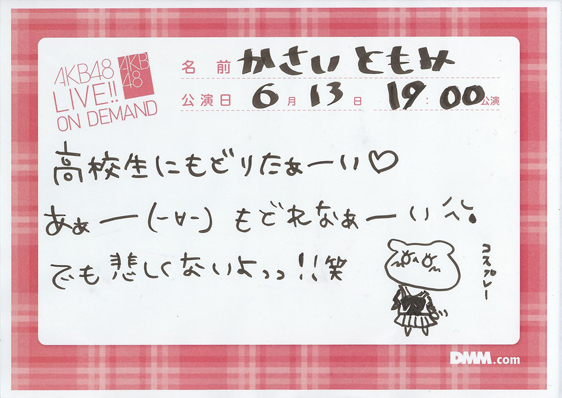 AKB48
LIVE!!
ON DEMAND
AKB
48
名前 かさい ともみ
公演日 6月 13日 19:00公演
高校生にもどりたぁーい♡
あぁー(-∀-) もどれなぁーい
でも悲しくないよっっ!!笑
コスプレー
DMM.com